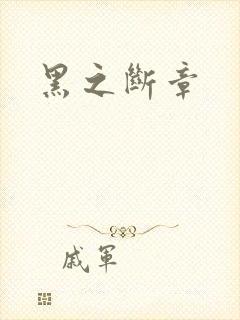 黑之斷章
戚軍